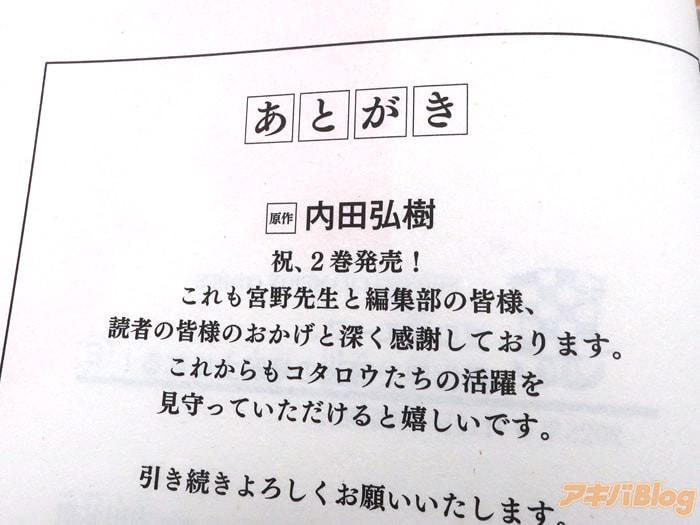 あとがき
原作 内田弘樹
祝、2巻発売！
これも宮野先生と編集部の皆様、
読者の皆様のおかげと深く感謝しております。
これからもコタロウたちの活躍を
見守っていただけると嬉しいです。
引き続きよろしくお願いいたします。
アキバBlog